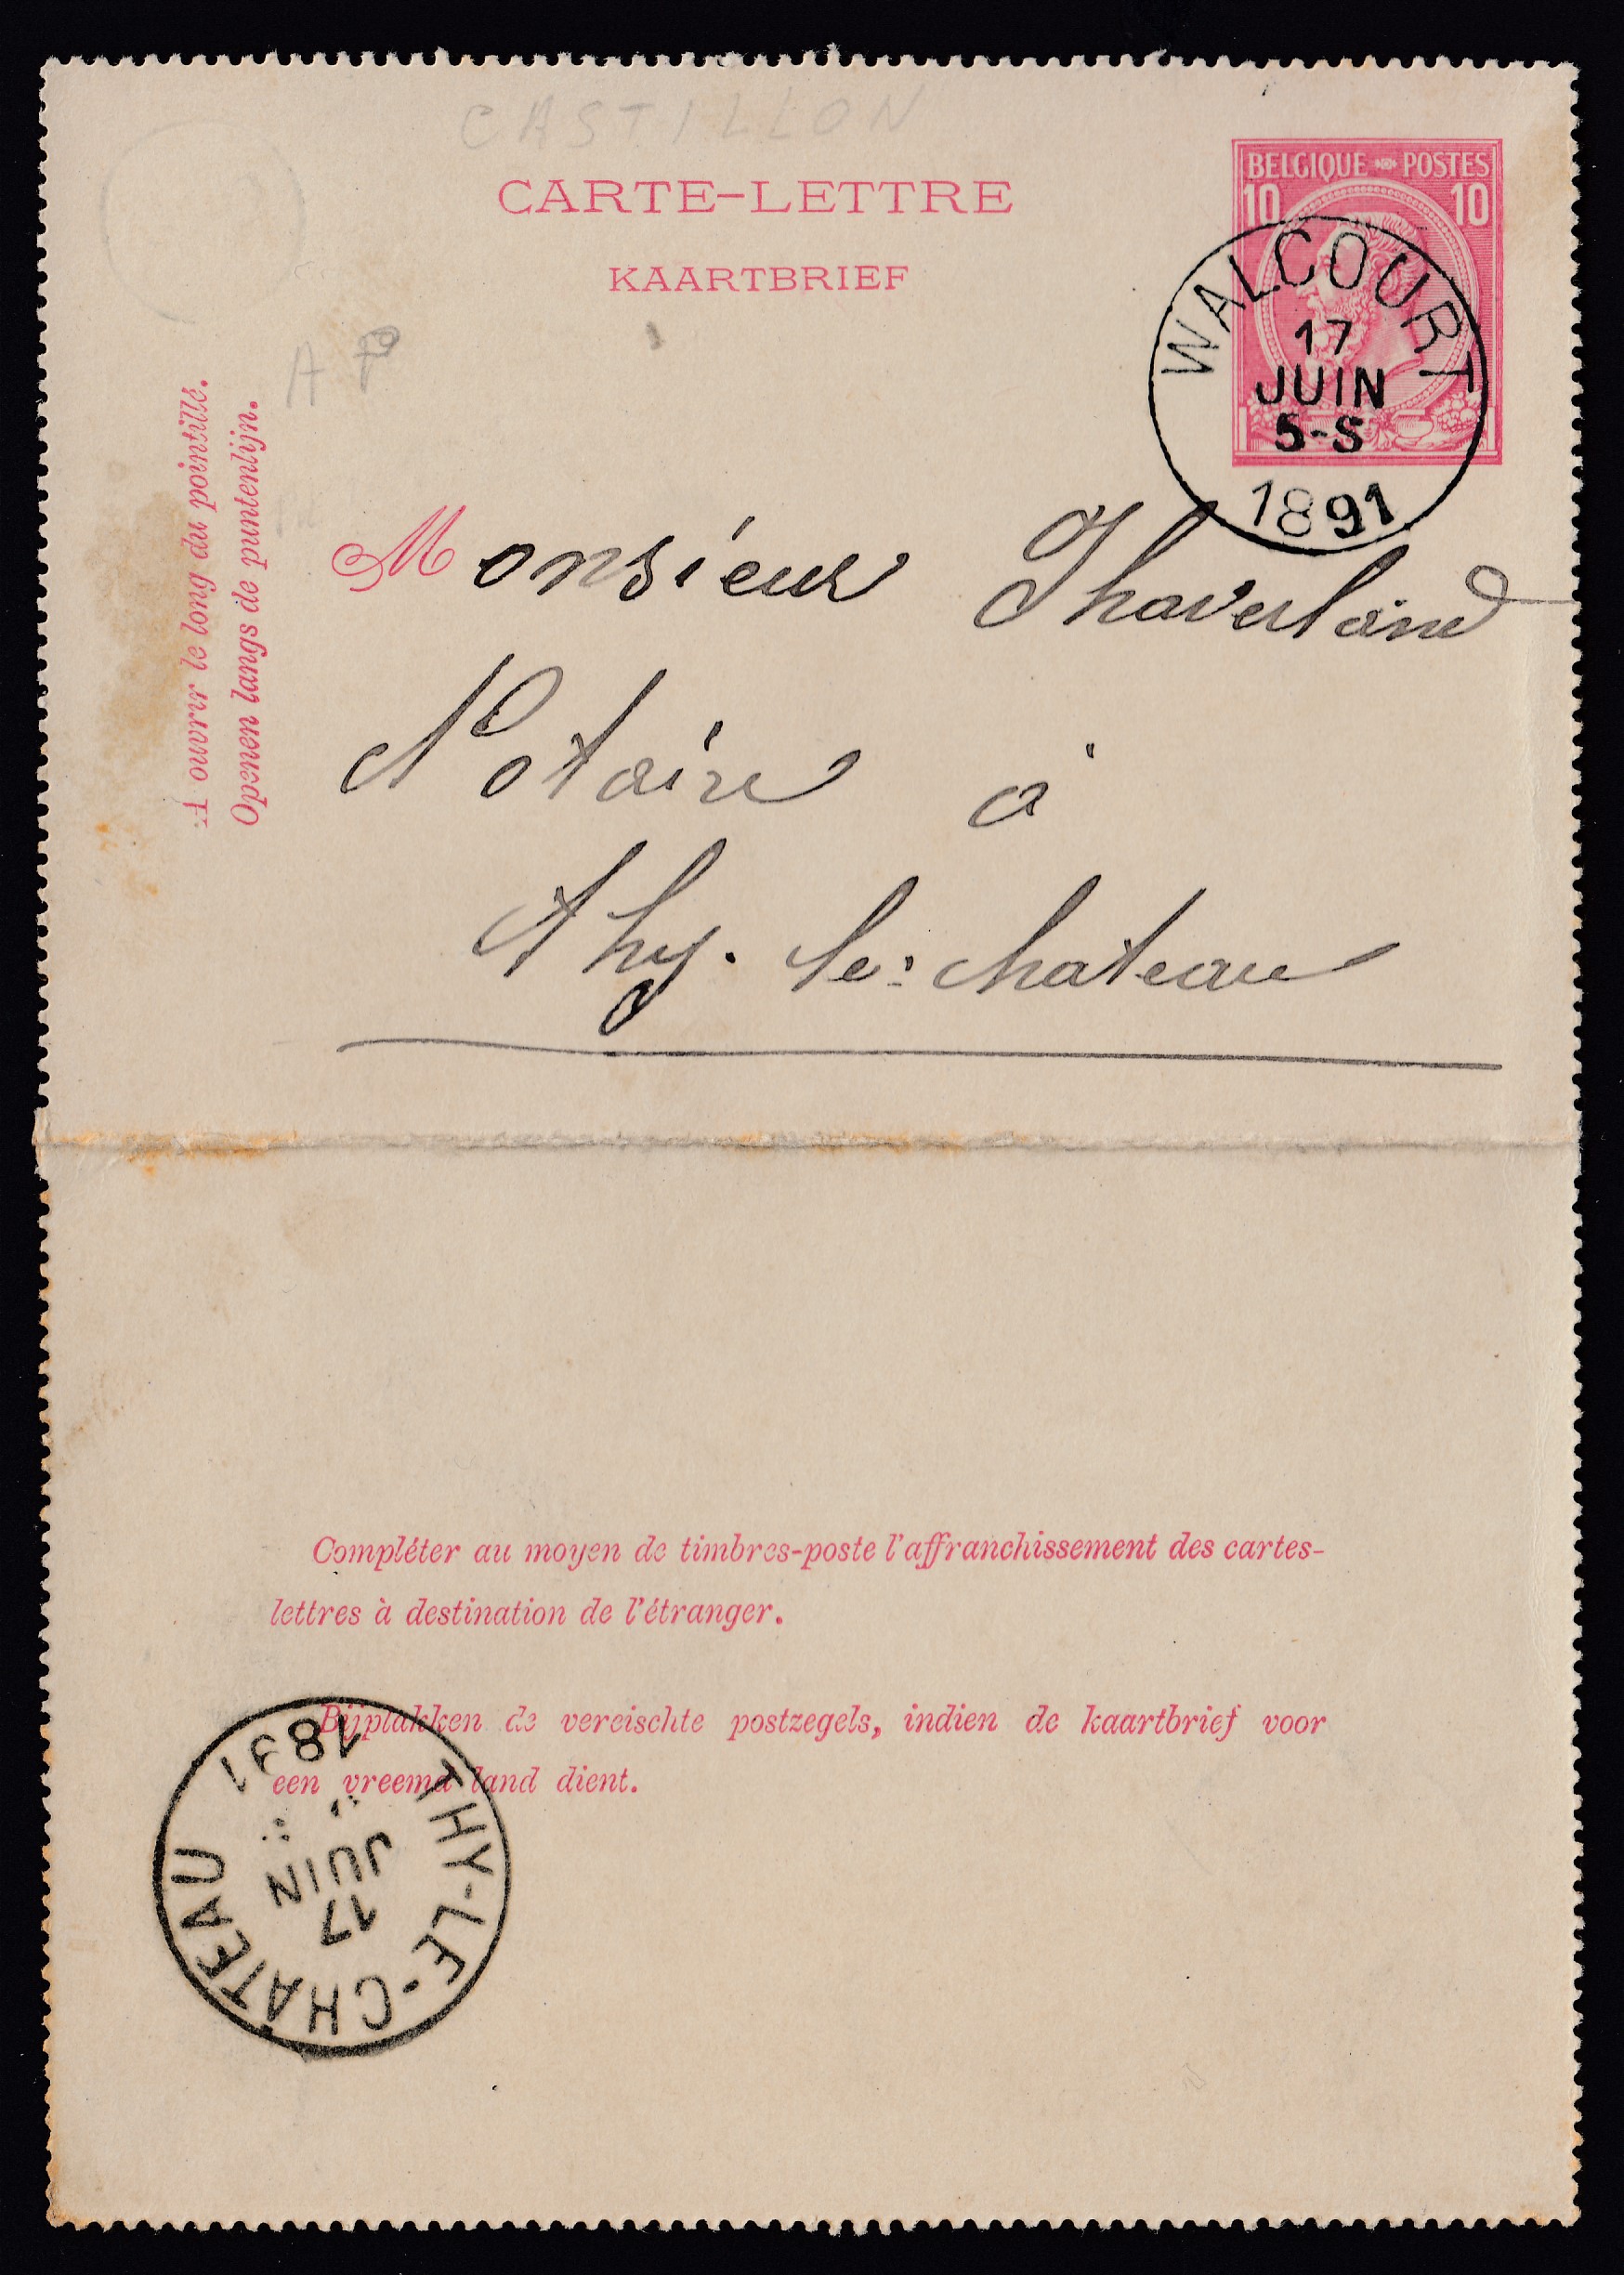 CASTILLON
CARTE-LETTRE
KAARTBRIEF
BELGIQUE POSTES
10 10
WALCOURT
17
JUIN
5-S
1891
A P
A ouvrir le long du pointillé.
Openen langs de puntenlijn.
Monsieur Thaverland
Notaire à
Thy-le-chateau
Compléter au moyen de timbres-poste l'affranchissement des cartes-
lettres à destination de l'étranger.
Bijplakken de vereischte postzegels, indien de kaartbrief voor
een vreemd land dient.
THY-LE-CHÂTEAU
17
JUIN
1891